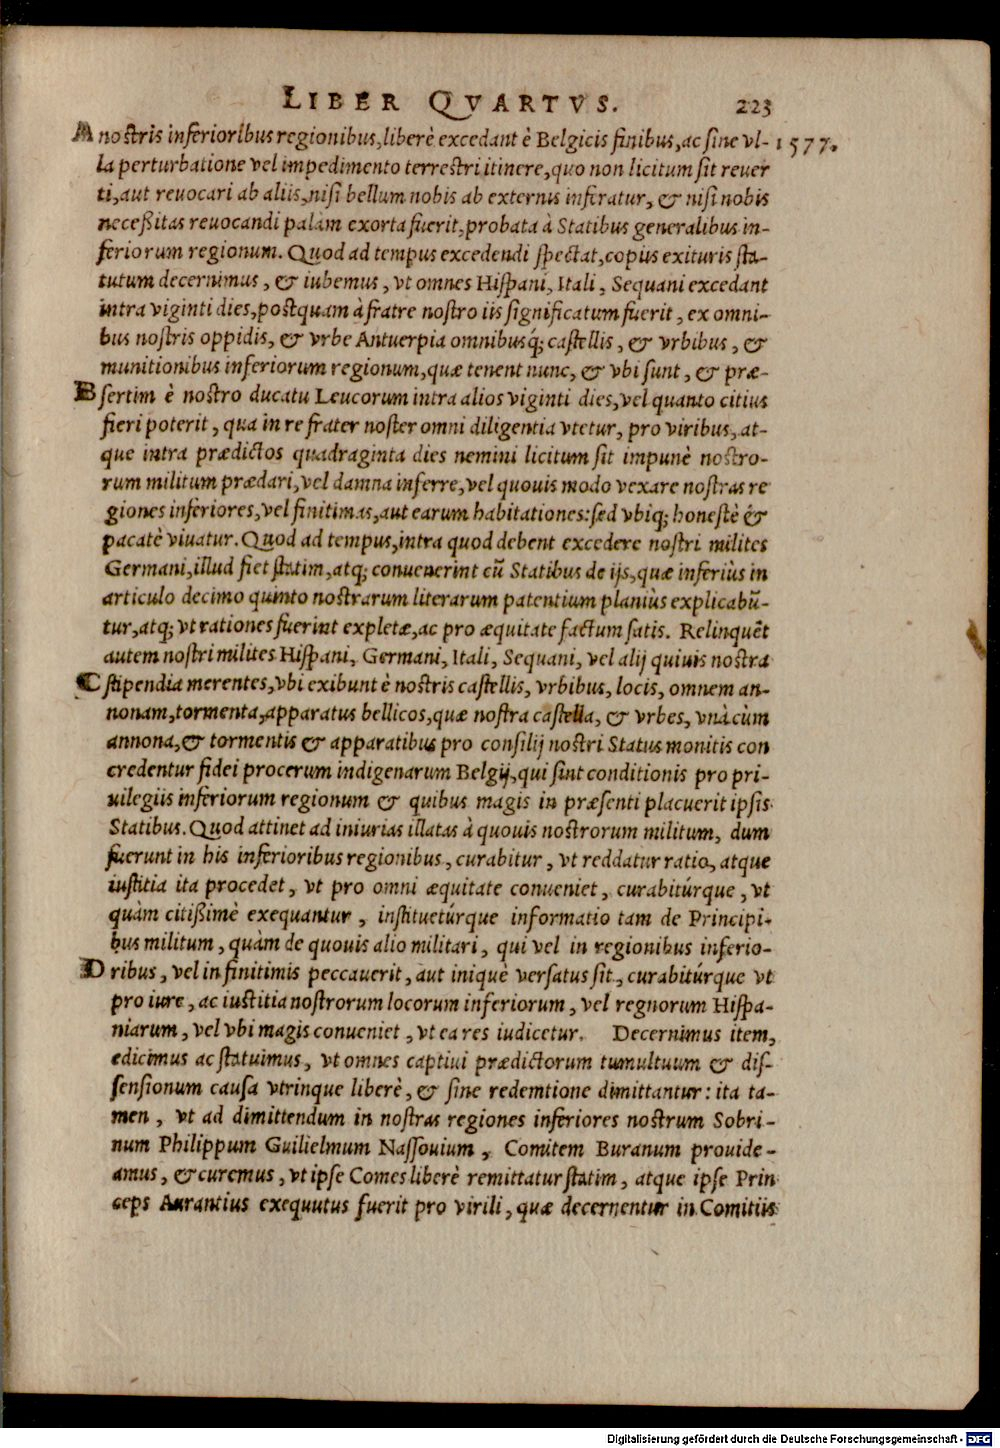 LIBER QVARTVS. 223
A nostris inferioribus regionibus, liberè excedant è Belgicis finibus, ac sine vl- 1577.
la perturbatione vel impedimento terrestri itinere, quo non licitum sit reuer
ti, aut reuocari ab aliis, nisi bellum nobis ab externis inferatur, & nisi nobis
neceßitas reuocandi palàm exorta fuerit, probata à Statibus generalibus in-
feriorum regionum. Quod ad tempus excedendi spectat, copiis exituris sta-
tutum decernimus, & iubemus, vt omnes Hispani, Itali, Sequani excedant
intra viginti dies, postquam à fratre nostro iis significatum fuerit, ex omni-
bus nostris oppidis, & vrbe Antuerpia omnibusq́; castellis, & vrbibus, &
munitionibus inferiorum regionum, quæ tenent nunc, & vbi sunt, & præ-
B sertim è nostro ducatu Leucorum intra alios viginti dies, vel quanto citius
fieri poterit, qua in re frater noster omni diligentia vtetur, pro viribus, at-
que intra prædictos quadraginta dies nemini licitum sit impunè nostro-
rum militum prædari, vel damna inferre, vel quouis modo vexare nostras re
giones inferiores, vel finitimas, aut earum habitationes: sed vbiq; honestè &
pacatè viuatur. Quod ad tempus, intra quod debent excedere nostri milites
Germani, illud fiet statim, atq; conuenerint cū Statibus de ijs, quæ inferiùs in
articulo decimo quinto nostrarum literarum patentium planiùs explicabū-
tur, atq; vt rationes fuerint expletæ, ac pro æquitate factum satis. Relinquēt
autem nostri milites Hispani, Germani, Itali, Sequani, vel alij quiuis nostra
C stipendia merentes, vbi exibunt è nostris castellis, vrbibus, locis, omnem an-
nonam, tormenta, apparatus bellicos, quæ nostra castella, & vrbes, vnà cùm
annona, & tormentis & apparatibus pro consilij nostri Status monitis con
credentur fidei procerum indigenarum Belgij, qui sint conditionis pro pri-
uilegiis inferiorum regionum & quibus magis in præsenti placuerit ipsis
Statibus. Quod attinet ad iniurias illatas à quouis nostrorum militum, dum
fuerunt in his inferioribus regionibus, curabitur, vt reddatur ratio, atque
iustitia ita procedet, vt pro omni æquitate conueniet, curabitúrque, vt
quàm citißimè exequantur, instituetúrque informatio tam de Principi-
bus militum, quàm de quouis alio militari, qui vel in regionibus inferio-
D ribus, vel in finitimis peccauerit, aut iniquè versatus sit, curabitúrque vt
pro iure, ac iustitia nostrorum locorum inferiorum, vel regnorum Hispa-
niarum, vel vbi magis conueniet, vt ea res iudicetur. Decernimus item,
edicimus ac statuimus, vt omnes captiui prædictorum tumultuum & dis-
sensionum causa vtrinque liberè, & sine redemtione dimittantur: ita ta-
men, vt ad dimittendum in nostras regiones inferiores nostrum Sobri-
num Philippum Guilielmum Nassouium, Comitem Buranum prouide-
amus, & curemus, vt ipse Comes liberè remittatur statim, atque ipse Prin
ceps Aurantius exequutus fuerit pro virili, quæ decernentur in Comitiis
Digitalisierung gefördert durch die Deutsche Forschungsgemeinschaft - DFG